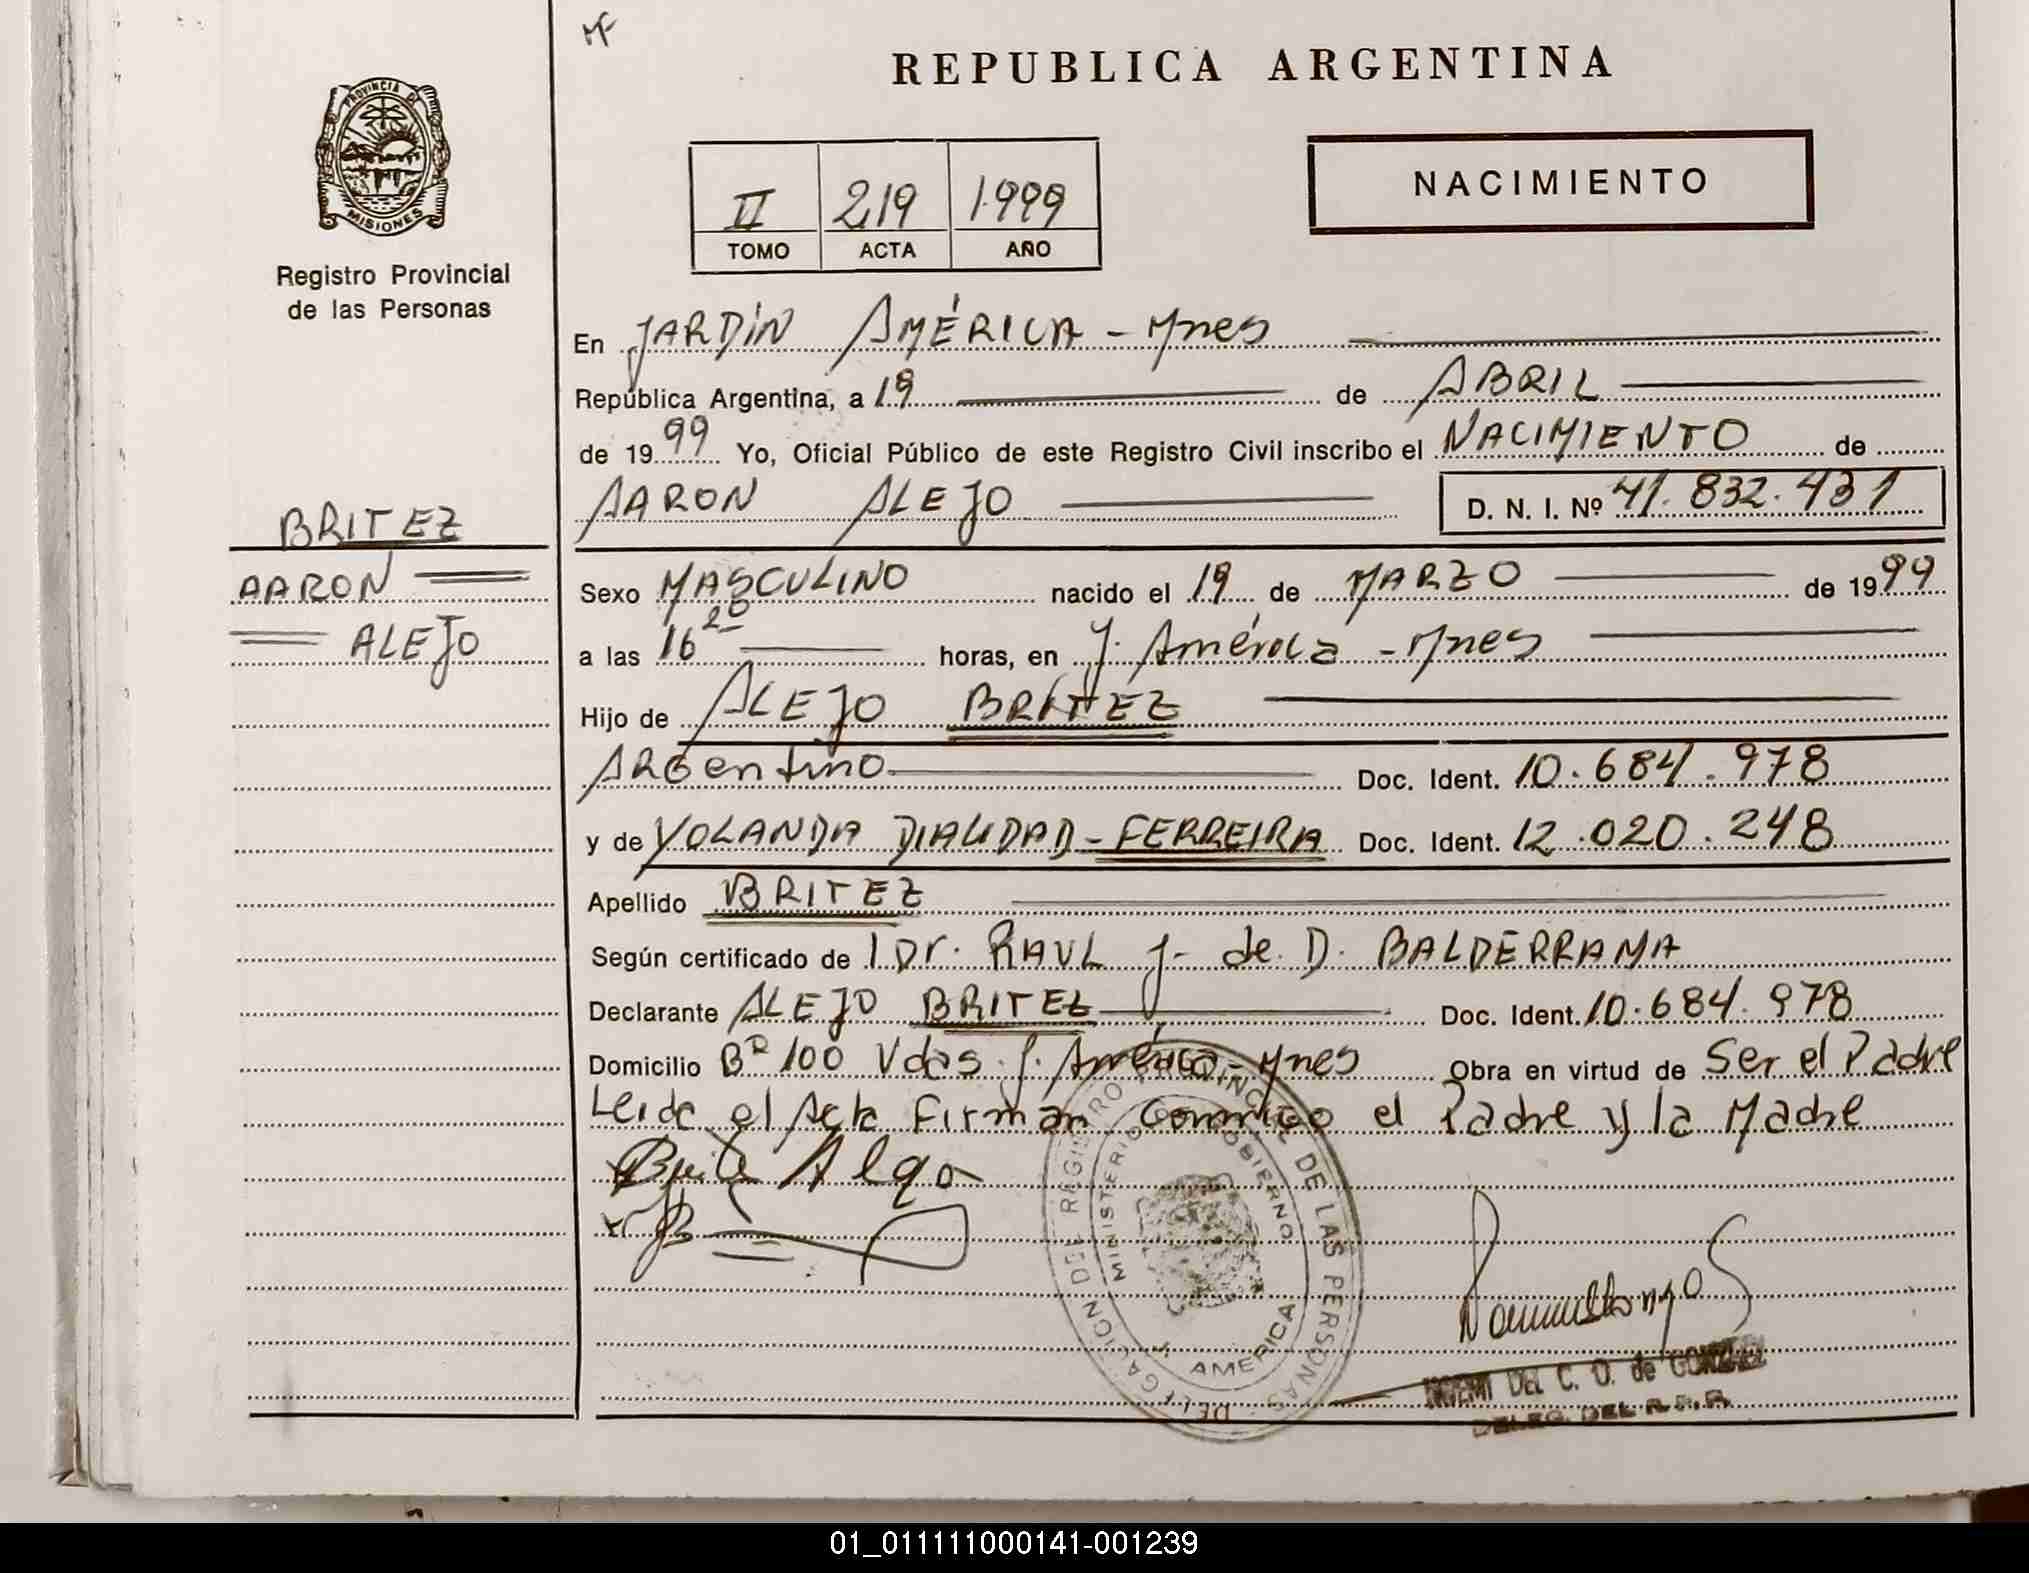 MF
REPUBLICA ARGENTINA
PROVINCIA DE
MISIONES
Registro Provincial
de las Personas
II 219 1999
TOMO ACTA AÑO
NACIMIENTO
En JARDÍN AMÉRICA - Mnes
República Argentina, a 19 de ABRIL
de 1999 Yo, Oficial Público de este Registro Civil inscribo el NACIMIENTO de
AARON ALEJO D. N. I. Nº 41.832.431
BRITEZ
AARON
ALEJO
Sexo MASCULINO nacido el 19 de MARZO de 1999
a las 16 20 horas, en J. América - Mnes
Hijo de ALEJO BRITEZ
ARGentino Doc. Ident. 10.684.978
y de YOLANDA DIALIDAD - FERREIRA Doc. Ident. 12.020.248
Apellido BRITEZ
Según certificado de l Dr. RAUL J. de D. BALDERRAMA
Declarante ALEJO BRITEZ Doc. Ident. 10.684.978
Domicilio Bº 100 Vdas. J. América - Mnes Obra en virtud de Ser el Padre
Leida el Acta Firman Conmigo el Padre y la Madre
DELEGACION DEL REGISTRO PROVINCIAL DE LAS PERSONAS
MINISTERIO DE GOBIERNO
J. AMERICA
DEL C. O. de GONZALEZ
DELEG. DEL R.P.P.
01_011111000141-001239